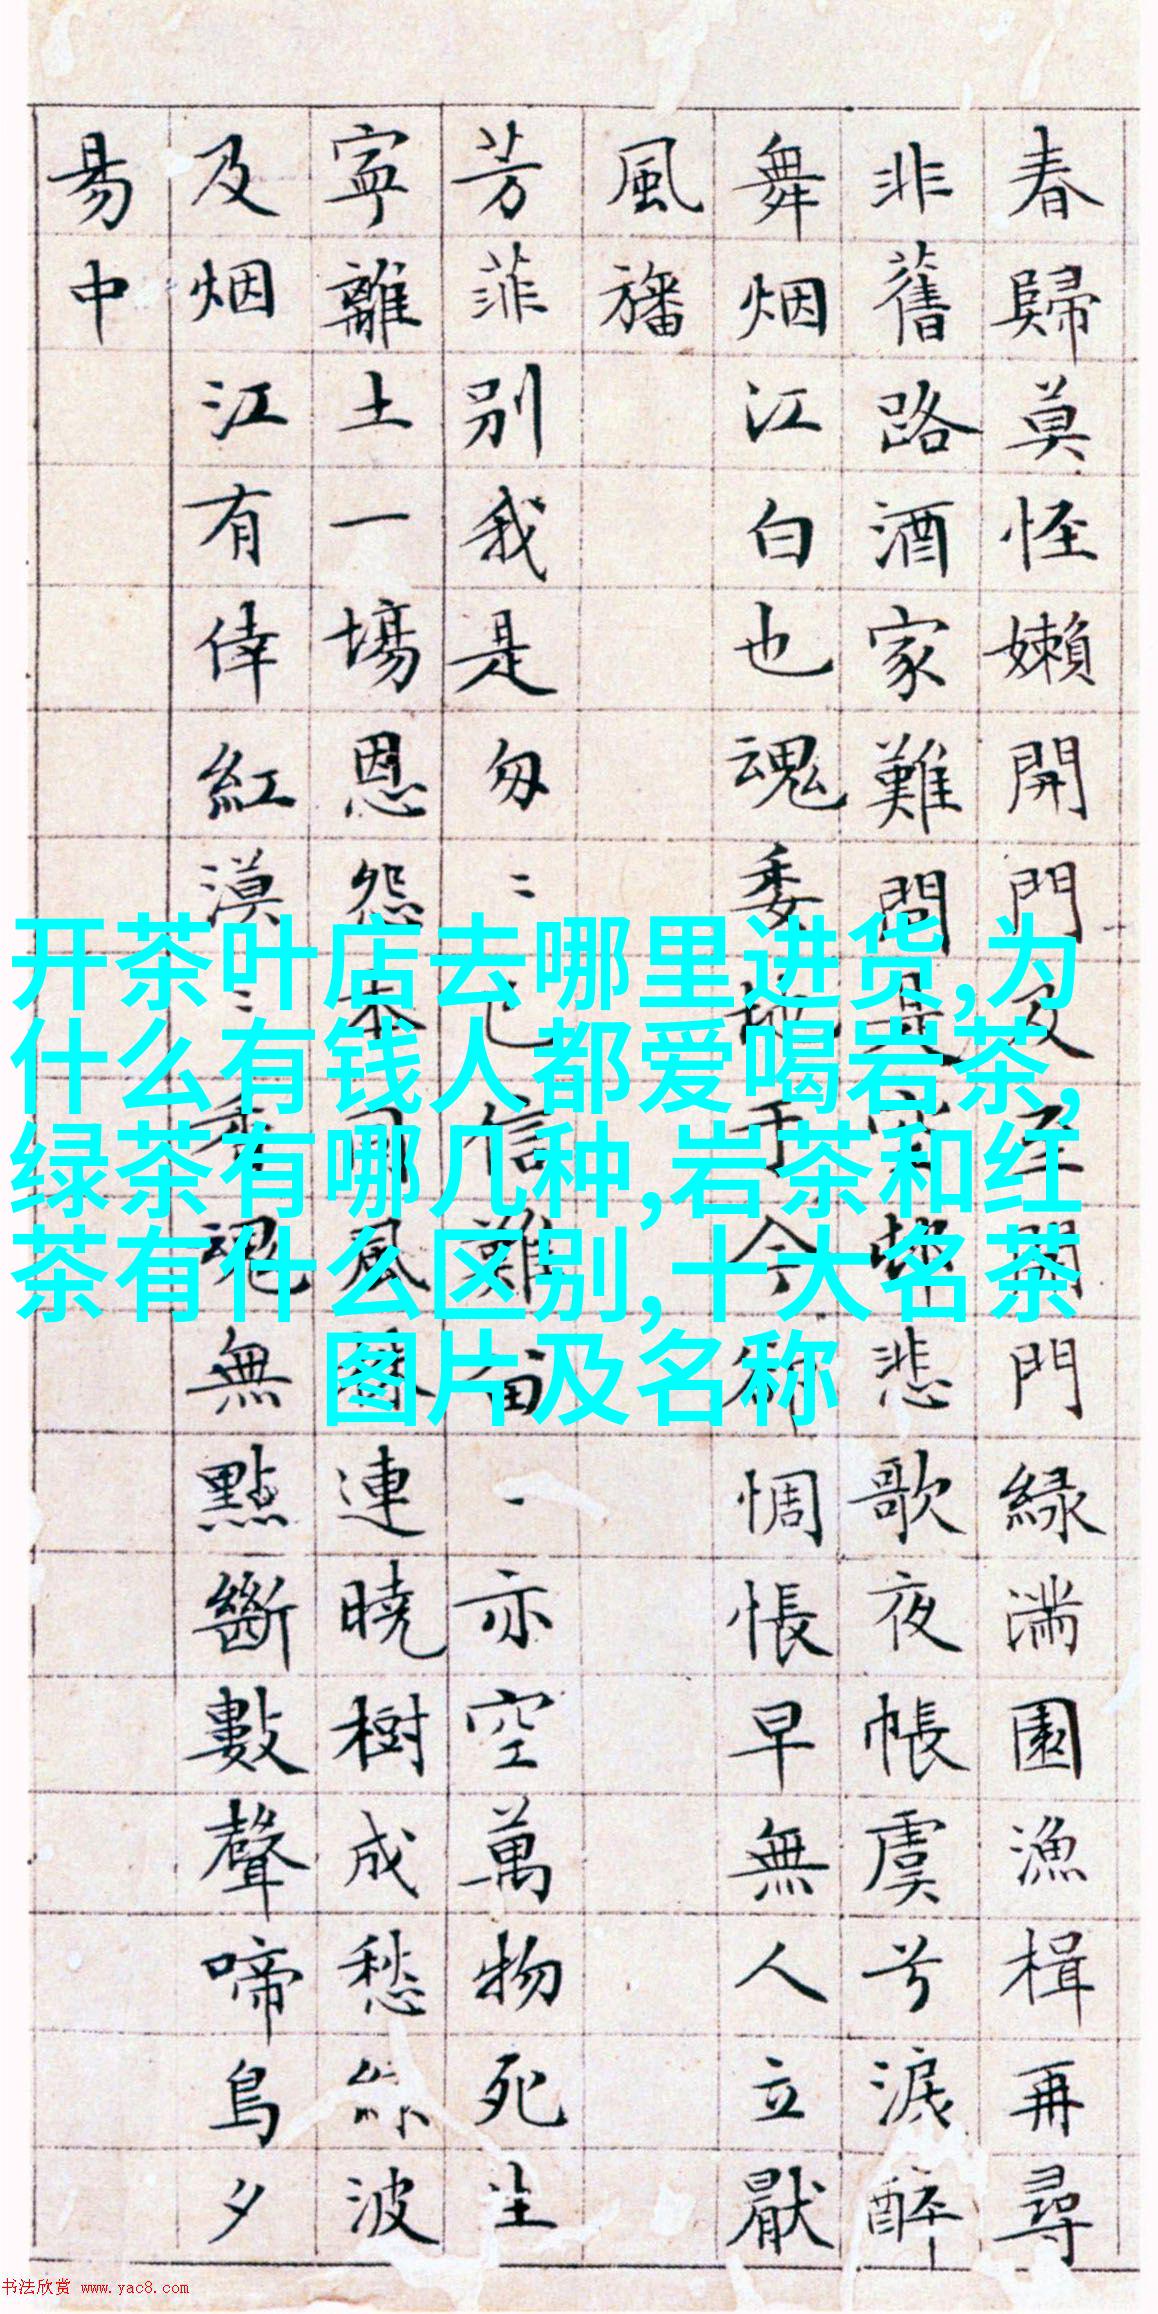 春歸莫怪嬾開門及至開門緑滿園漁楫再尋
非舊路酒家難問是空邨悲歌夜帳虞兮淚醉
舞烟江白也魂委地于今卻惆悵早無人立厭
風旛
芳菲別我是匆〻已信難留一亦空萬物死生
寧離土一場恩怨本同風株連曉樹成愁綠波
及烟江有倖紅漠〻香魂無點斷數聲啼鳥夕
易中
开茶叶店去哪里进货,为
什么有钱人都爱喝岩茶,
绿茶有哪几种,岩茶和红
茶有什么区别,十大名茶
图片及名称
书法欣赏 www.yac8.com